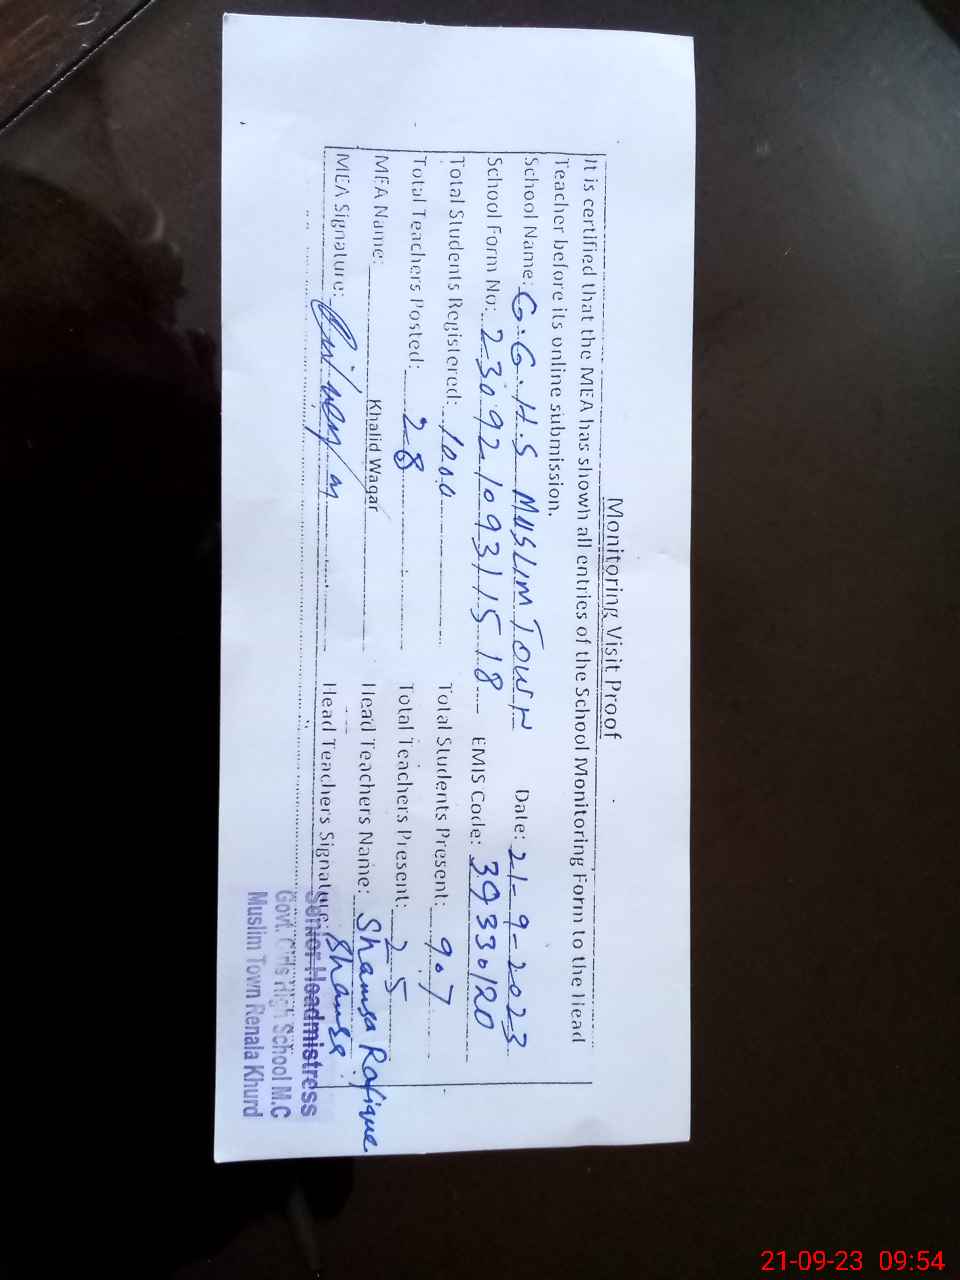 Monitoring Visit Proof
It is certified that the MEA has shown all entries of the School Monitoring Form to the Head
Teacher before its online submission.
School Name: G.G.H.S MUSLIM TOWN Date: 21-9-2023
School Form No: 2309210931518 EMIS Code: 39330120
Total Students Registered: 1000 Total Students Present: 907
Total Teachers Posted: 28 Total Teachers Present: 25
MEA Name: Khalid Waqar Head Teachers Name: Shamsa Rafique
MEA Signature: Head Teachers Signature: Shamsa
Senior Headmistress
Govt. Girls High School M.C
Muslim Town Renala Khurd
21-09-23 09:54